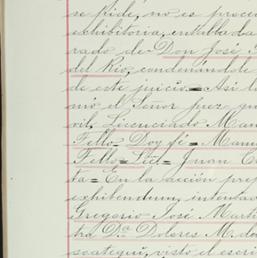 se pide, no es proce
exhibitoria, entablada
rado de Don José
del Rio, condenándole
de este juicio = Así lo
mó el Señor juez qu
vil, Licenciado Man
Tello = Doy fé = Manu
Tello = Lic. Juan
ta = En la acción pre
exhibendum, intentad
Gregorio José Marti
tra Dª Dolores M. de
scategui, visto el escri